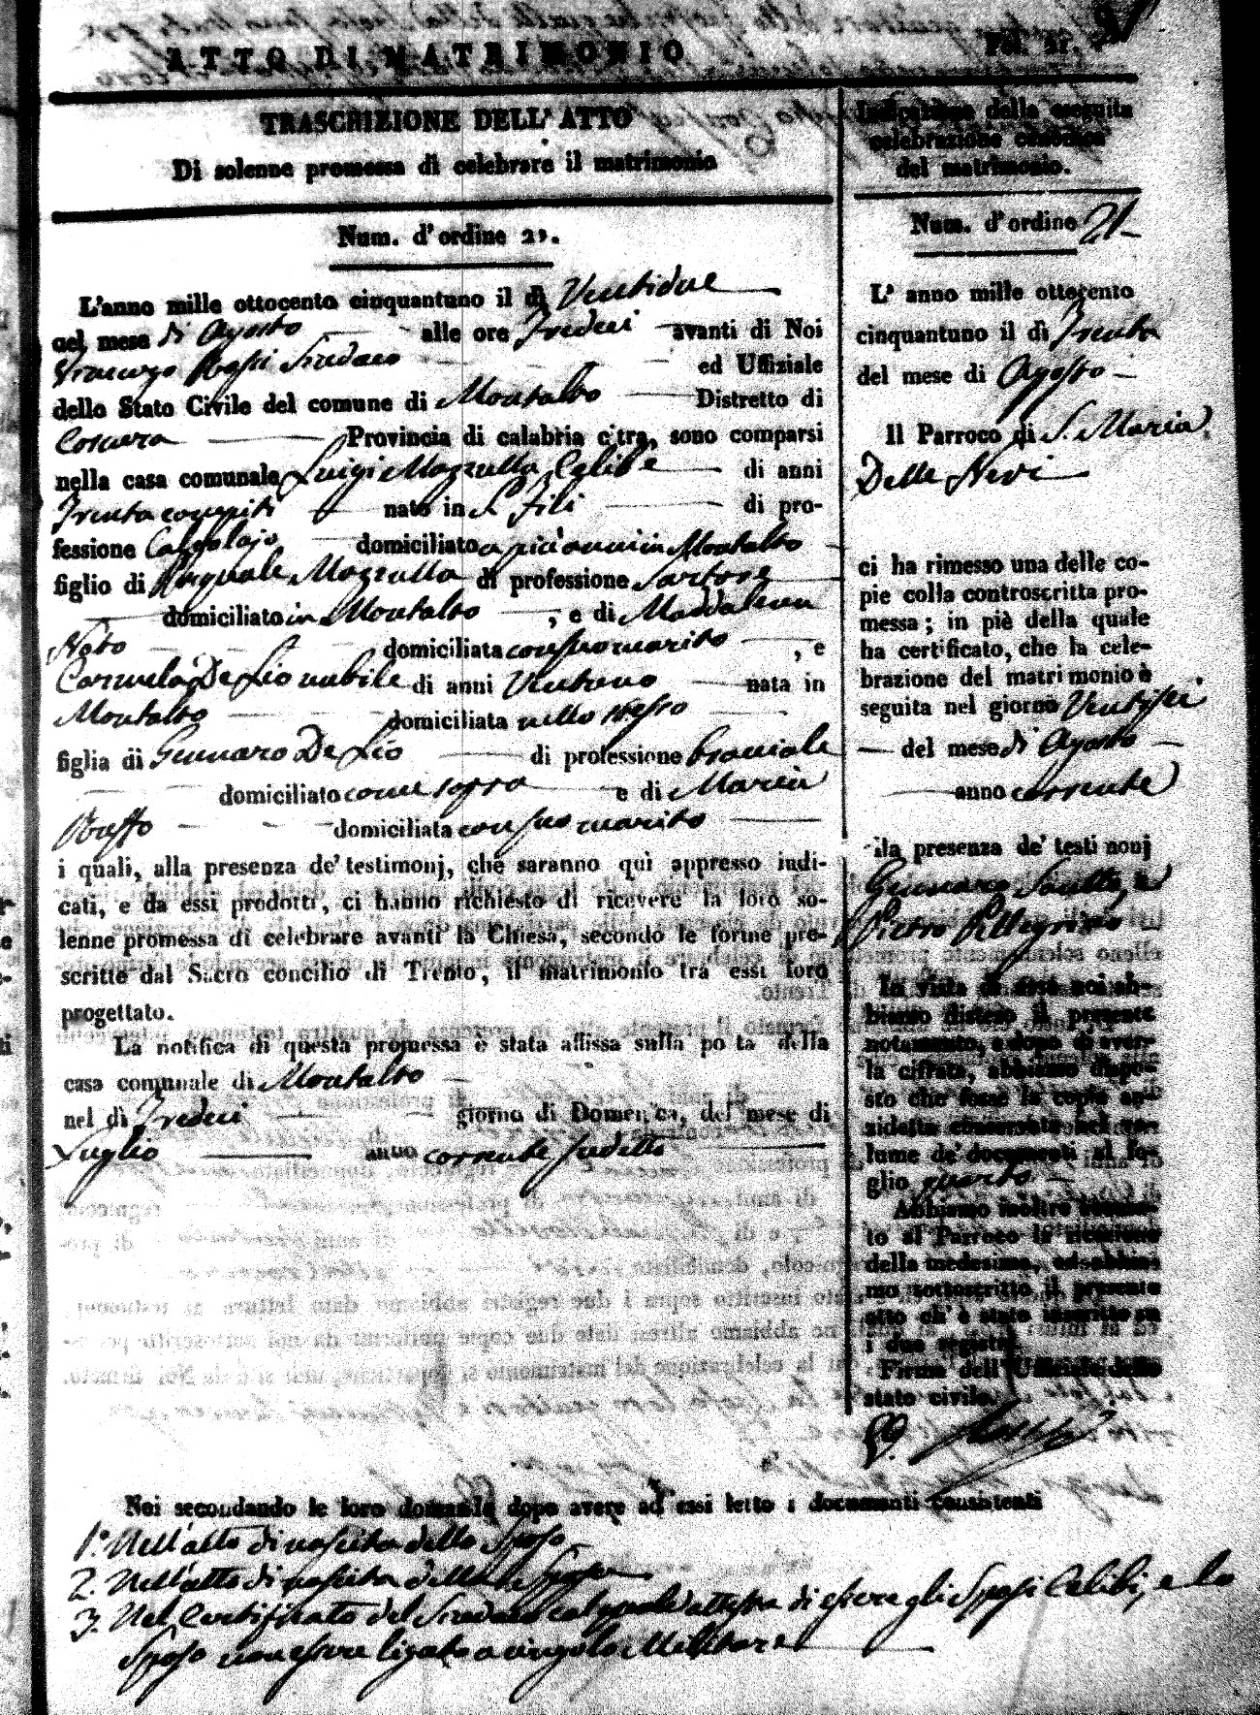 ATTO DI MATRIMONIO
TRASCRIZIONE DELL' ATTO
Di solenne promessa di celebrare il matrimonio
Num. d'ordine 21.
L'anno mille ottocento cinquantuno il dì Ventidue
nel mese di Agosto alle ore Tredeci avanti di Noi
Rossi Sindaco ed Uffiziale
dello Stato Civile del comune di Montalto Distretto di
Cosenza Provincia di calabria citra, sono comparsi
nella casa comunale Luigi Mazzulla Celibe di anni
Trenta compiti nato in S. Fili di pro-
fessione Calzolajo domiciliato in Montalto
figlio di Pasquale Mazzulla di professione Sartore
domiciliato in Montalto, e di Maddalena
Noto domiciliata con suo marito, e
Carmela De Lio nubile di anni Ventuno nata in
Montalto domiciliata nello stesso
figlia di Gennaro De Lio di professione bracciale
domiciliato come sopra e di Maria
domiciliata con suo marito
i quali, alla presenza de' testimonj, che saranno quì appresso indi-
cati, e da essi prodotti, ci hanno richiesto di ricevere la loro so-
lenne promessa di celebrare avanti la Chiesa, secondo le forme pre-
scritte dal Sacro concilio di Trento, il matrimonio tra essi loro
progettato.
La notifica di questa promessa è stata affissa sulla po ta della
casa comunale di Montalto
nel dì Tredeci giorno di Domenica, del mese di
Luglio anno corrente sudetto
Indicazione della seguita
celebrazione canonica
del matrimonio.
Num. d'ordine 21
L' anno mille ottocento
cinquantuno il dì Trenta
del mese di Agosto
Il Parroco di S. Maria
Delle Nevi
ci ha rimesso una delle co-
pie colla controscritta pro-
messa; in piè della quale
ha certificato, che la cele-
brazione del matrimonio è
seguita nel giorno Ventisei
del mese di Agosto
anno corrente
alla presenza de' testi nonj
Gennaro e
Pietro Pellegrino
In vista di essa noi ab-
biamo disteso il presente
notamento, e dopo di aver-
la cifrata, abbiamo dispo-
sto che fosse la copia an-
zidetta conservata nel vo-
lume de' documenti al fo-
glio quarto
Abbiamo inoltre
to al Parroco la ricezione
della medesima, ed abbia-
mo sottoscritto il presente
atto ch' è stato inscritto su
i due registri
Firma dell' Uffiziale dello
stato civile.
Rossi
Noi secondando le loro domande dopo avere ad essi letto i documenti consistenti
1.º Nell'atto di nascita dello Sposo
2. Nell'atto di nascita della Sposa
3. Nel Certificato del Sindaco col quale attesta di essere gli Sposi Celibi, e lo
Sposo non essere ligato a vincolo Militare